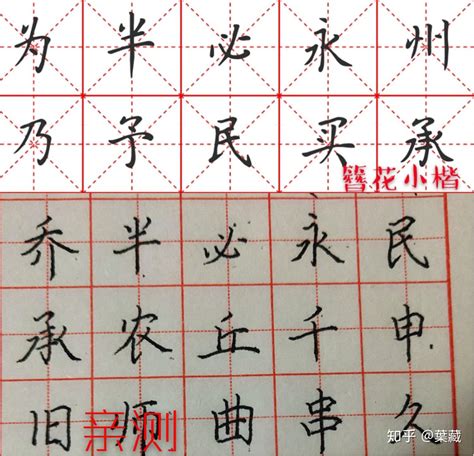 为半必永州
乃予民买承
簪花小楷
乔半必永民
承农丘千申
旧师曲串久
亲测
知乎 @葉藏